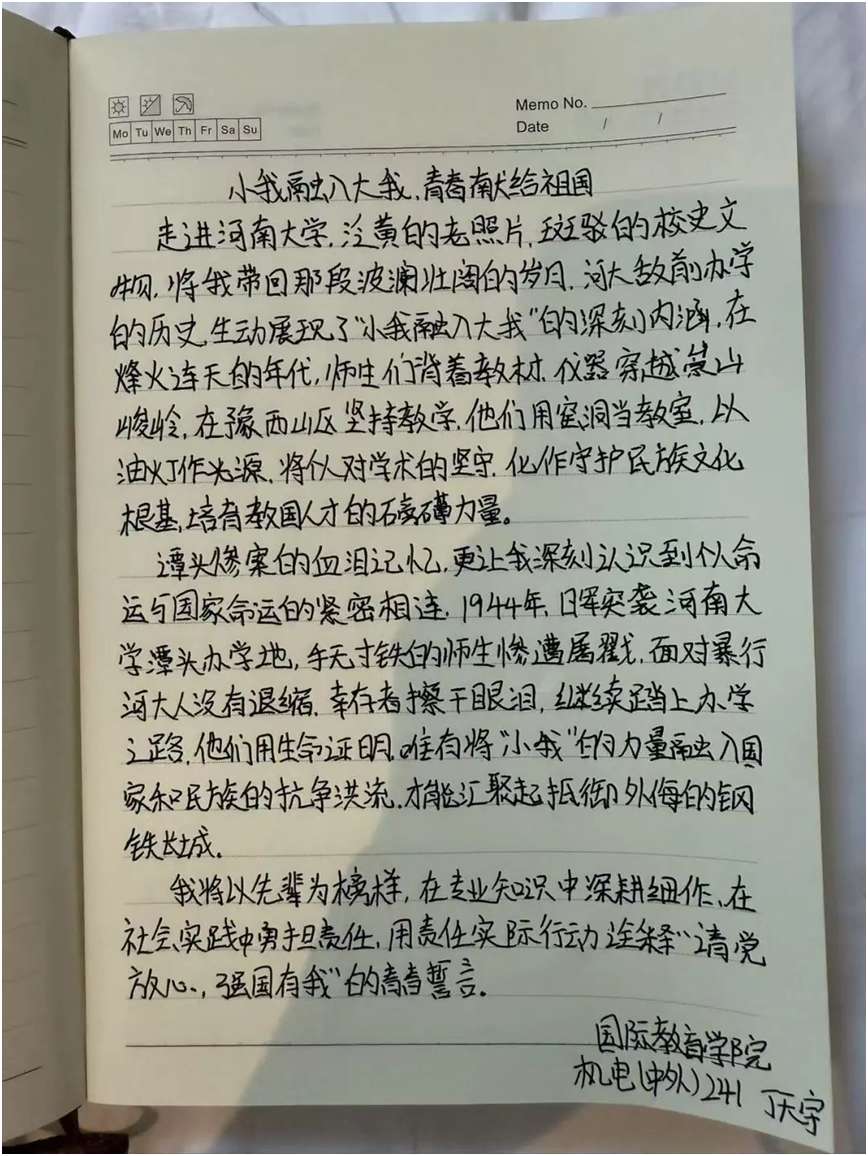 Memo No.
Mo Tu We Th Fr Sa Su
Date / /
小我融入大我，青春献给祖国
走进河南大学，泛黄的老照片，斑驳的校史文
物，将我带回那段波澜壮阔的岁月，河大敌前办学
的历史，生动展现了“小我融入大我”的深刻内涵，在
烽火连天的年代，师生们背着教材、仪器穿越崇山
峻岭，在豫西山区坚持教学，他们用窑洞当教室，以
油灯作光源，将个人对学术的坚守，化作守护民族文化
根基，培育救国人才的磅礴力量。
潭头惨案的血泪记忆，更让我深刻认识到个人命
运与国家命运的紧密相连，1944年，日军突袭河南大
学潭头办学地，手无寸铁的师生惨遭屠戮，面对暴行
河大人没有退缩，幸存者擦干眼泪，继续踏上办学
之路，他们用生命证明，唯有将“小我”的力量融入国
家和民族的抗争洪流，才能汇聚起抵御外侮的钢
铁长城。
我将以先辈为榜样，在专业知识中深耕细作、在
社会实践中勇担责任，用责任实际行动诠释“请党
放心，强国有我”的青春誓言。
国际教育学院
机电(中外)241 丁天宇